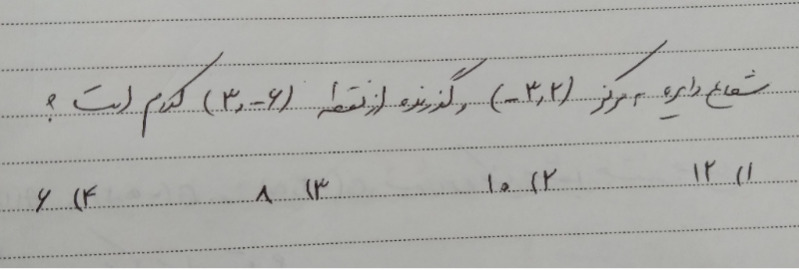 شعاع دایره به مرکز (-۳,۲) و گذرنده از نقطه (۳,-۶) کدام است؟
۱) ۱۲ ۲) ۱۰ ۳) ۸ ۴) ۶